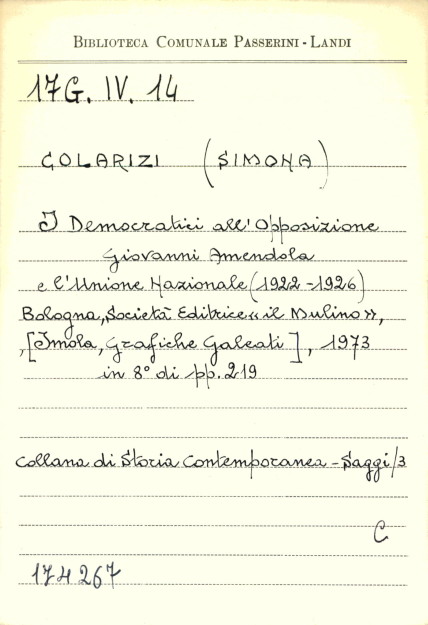 BIBLIOTECA COMUNALE PASSERINI - LANDI
17G. IV. 14
COLARIZI (SIMONA)
I Democratici all'Opposizione
Giovanni Amendola
e l'Unione Nazionale (1922-1926)
Bologna, Società Editrice « il Mulino »,
, [Imola, Grafiche Galeati], 1973
in 8° di pp. 219
Collana di Storia Contemporanea - Saggi/3
C
174267